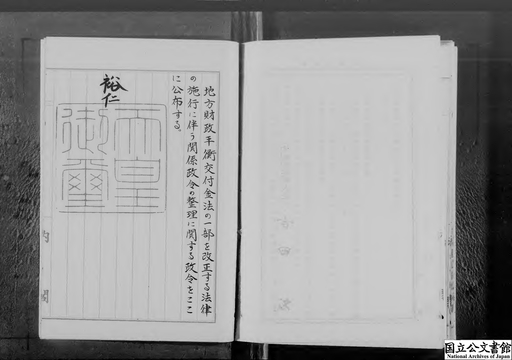 地方財政平衡交付金法の一部を改正する法律
の施行に伴う関係政令の整理に関する政令をここ
に公布する。
裕仁
天皇
御璽
内閣
国立公文書館
National Archives of Japan